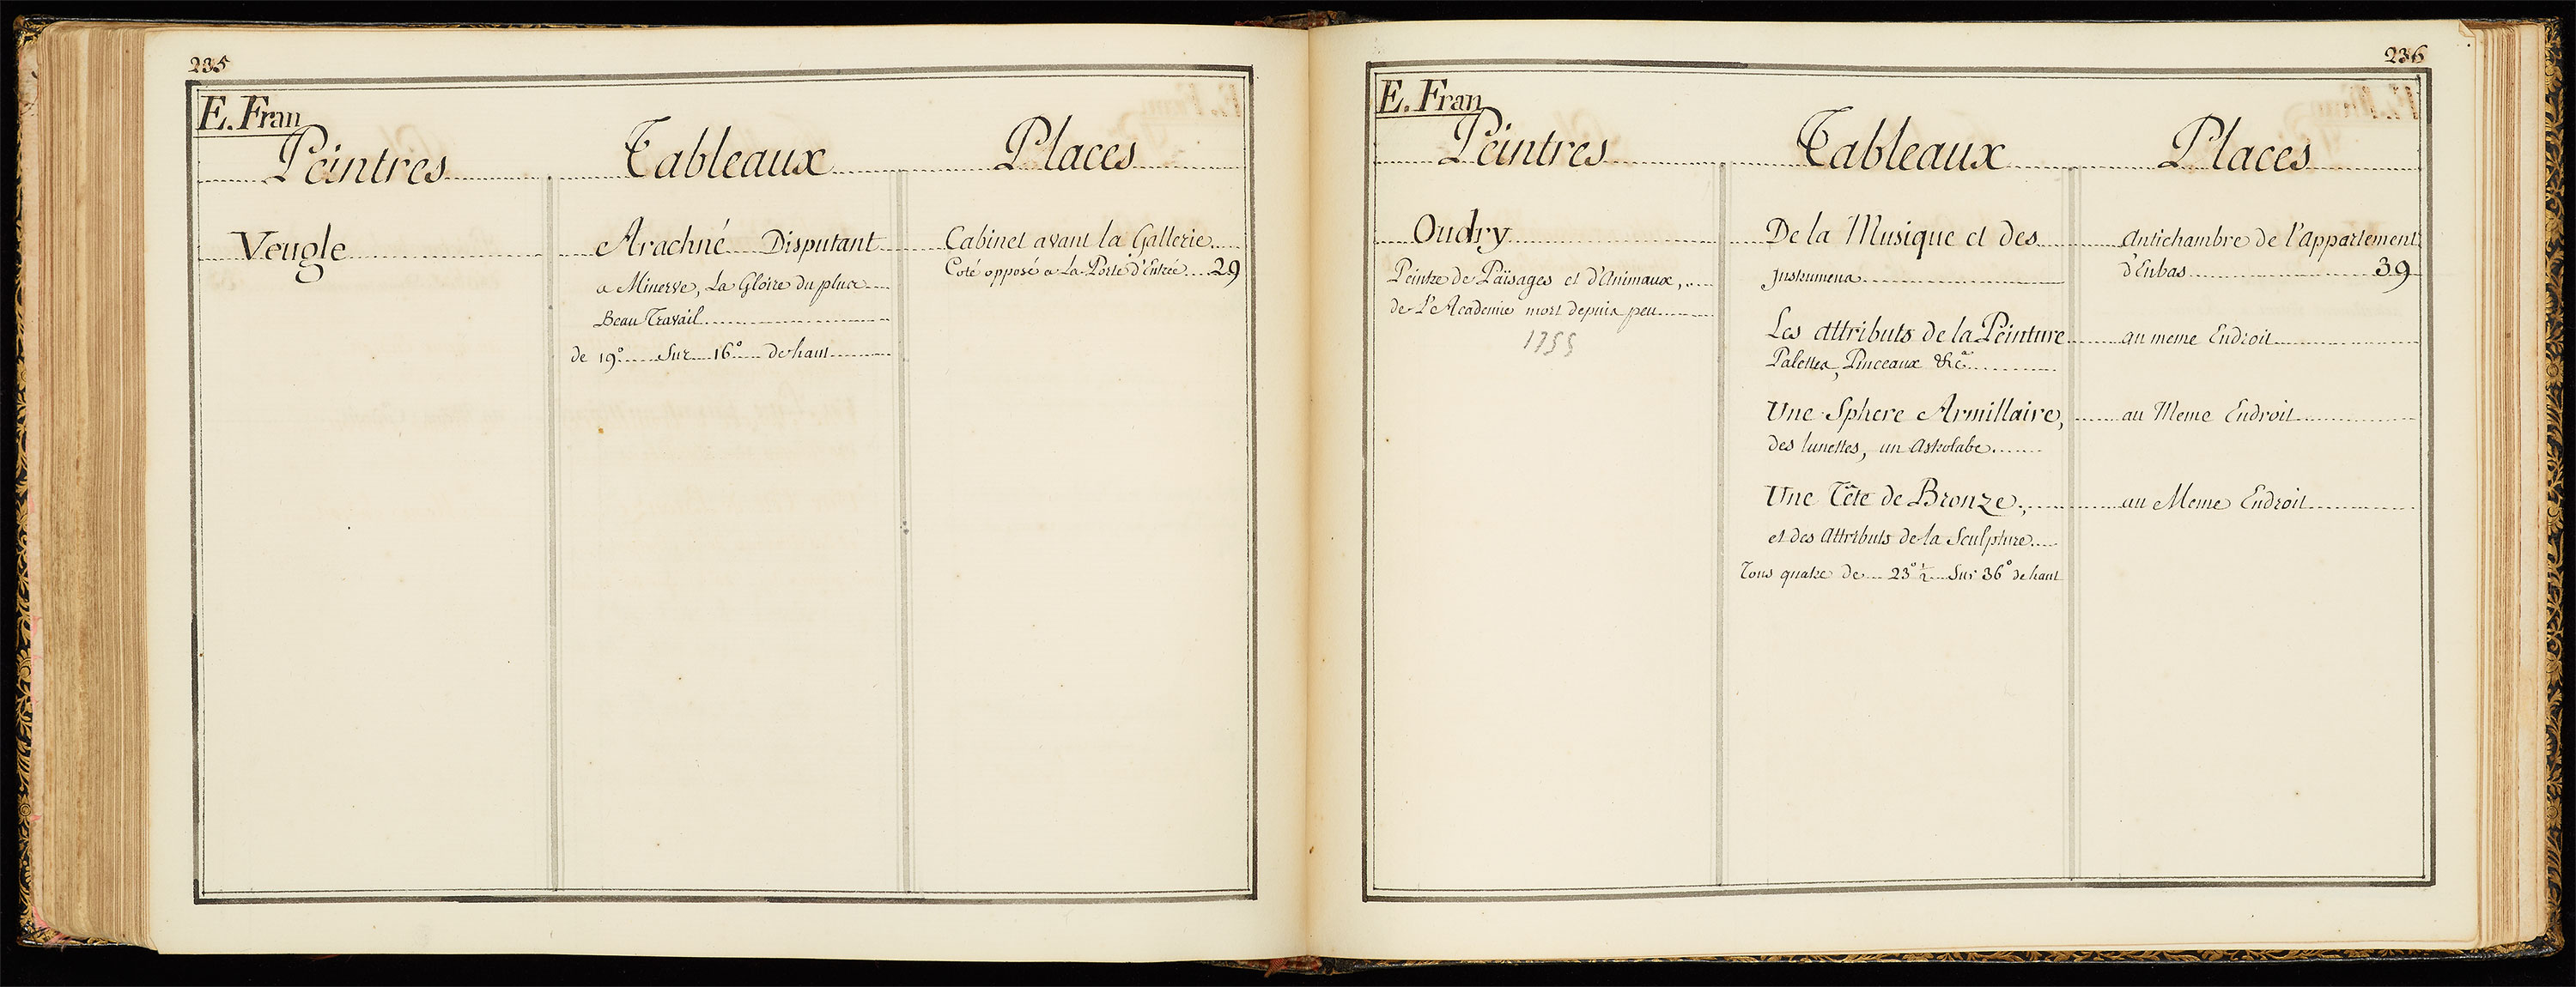 235
E. Fran
Peintres Tableaux Places
Veugle
Arachné Disputant
a Minerve, La Gloire du plus
Beau Travail
de 19° Sur 16° de haut
Cabinet avant la Gallerie
Coté opposé a La Porte d'Entrée 29
236
E. Fran
Peintres Tableaux Places
Oudry
Peintre de Païsages et d'Animaux,
de L'Academie mort depuis peu
1755
De la Musique et des
Instrumens
Les attributs de la Peinture
Palettes, Pinceaux &c.ª
Une Sphere Armillaire,
des lunettes, un Astrolabe
Une Tête de Bronze,
et des Attributs de la Sculpture
Tous quatre de 23° ½ Sur 36° de haut
Antichambre de l'appartement
d'Enbas 39
au meme Endroit
au Meme Endroit
au Meme Endroit